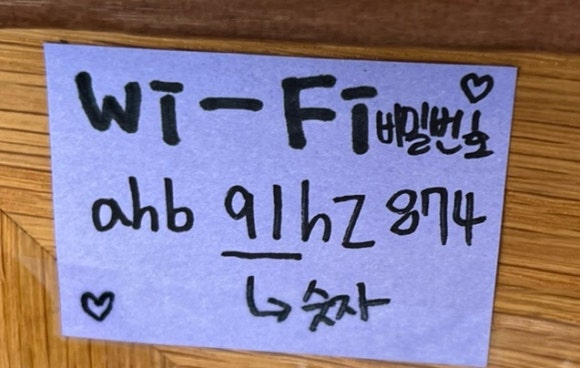 Wi-Fi 비밀번호
ahb 91hz 874
↳ 숫자